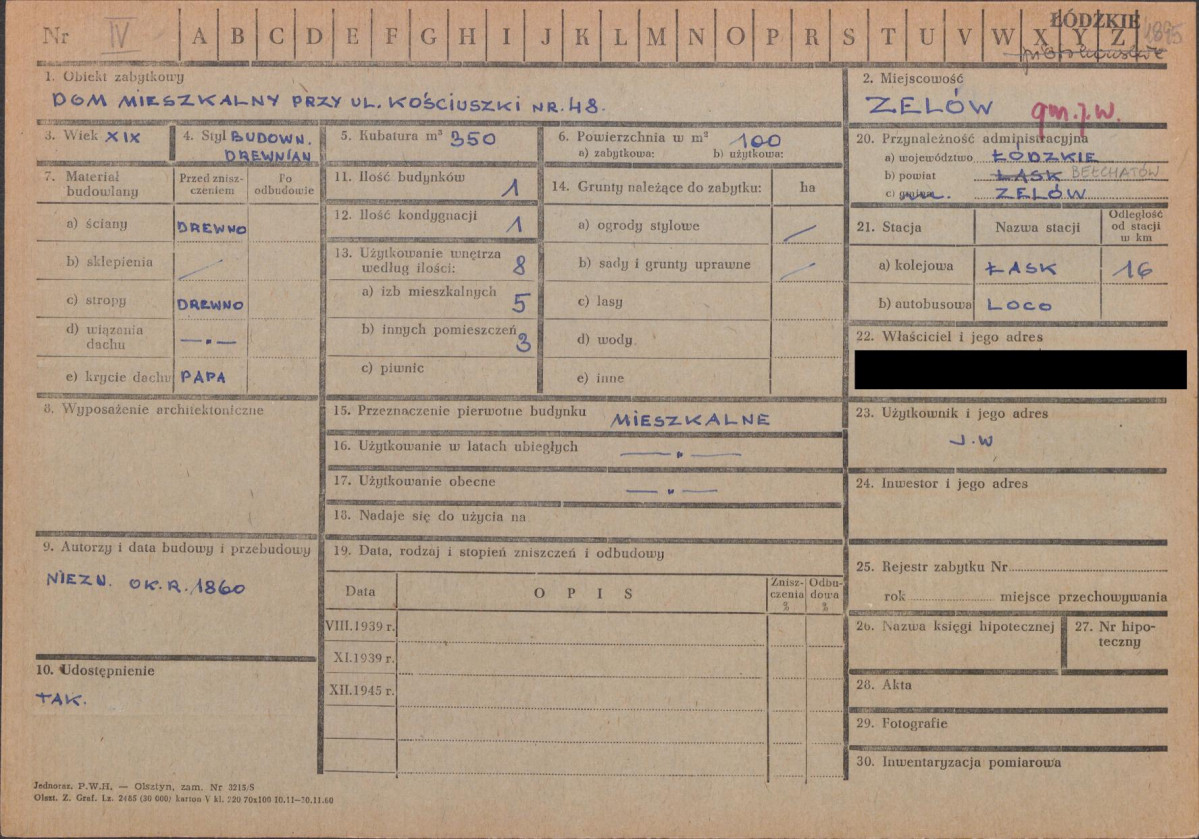 Nr IV A B C D E F G H I J K L M N O P R S T U V W X Y Z
ŁÓDZKIE 1895
piotrkowskie
1. Obiekt zabytkowy
DOM MIESZKALNY PRZY UL. KOŚCIUSZKI NR. 48.
2. Miejscowość
ZELÓW gm.j.w.
3. Wiek XIX
4. Styl BUDOWN.
DREWNIAN
5. Kubatura m³ 350
6. Powierzchnia w m² 100
a) zabytkowa: b) użytkowa:
7. Materiał budowlany
Przed znisz-
czeniem
Po
odbudowie
a) ściany DREWNO
b) sklepienia /
c) stropy DREWNO
d) wiązania
dachu —„—
e) krycie dachu PAPA
8. Wyposażenie architektoniczne
9. Autorzy i data budowy i przebudowy
NIEZN. OK. R. 1860
10. Udostępnienie
TAK.
11. Ilość budynków 1
12. Ilość kondygnacji 1
13. Użytkowanie wnętrza
według ilości: 8
a) izb mieszkalnych 5
b) innych pomieszczeń 3
c) piwnic
14. Grunty należące do zabytku: ha
a) ogrody stylowe /
b) sady i grunty uprawne /
c) lasy
d) wody
e) inne
15. Przeznaczenie pierwotne budynku MIESZKALNE
16. Użytkowanie w latach ubiegłych —„—
17. Użytkowanie obecne —„—
18. Nadaje się do użycia na
19. Data, rodzaj i stopień zniszczeń i odbudowy
Data O P I S
Znisz-
czenia
%
Odbu-
dowa
%
VIII.1939 r.
XI.1939 r.
XII.1945 r.
20. Przynależność administracyjna
a) województwo ŁÓDZKIE
b) powiat ŁASK BEŁCHATÓW
c) gmina ZELÓW
21. Stacja Nazwa stacji
Odległość
od stacji
w km
a) kolejowa ŁASK 16
b) autobusowa LOCO
22. Właściciel i jego adres
23. Użytkownik i jego adres
J.W
24. Inwestor i jego adres
25. Rejestr zabytku Nr
rok miejsce przechowywania
26. Nazwa księgi hipotecznej
27. Nr hipo-
teczny
28. Akta
29. Fotografie
30. Inwentaryzacja pomiarowa
Jednoraz. P.W.H. — Olsztyn, zam. Nr 3215/S
Olszt. Z. Graf. Lz. 2485 (30 000) karton V kl. 220 70x100 10.11—30.11.60